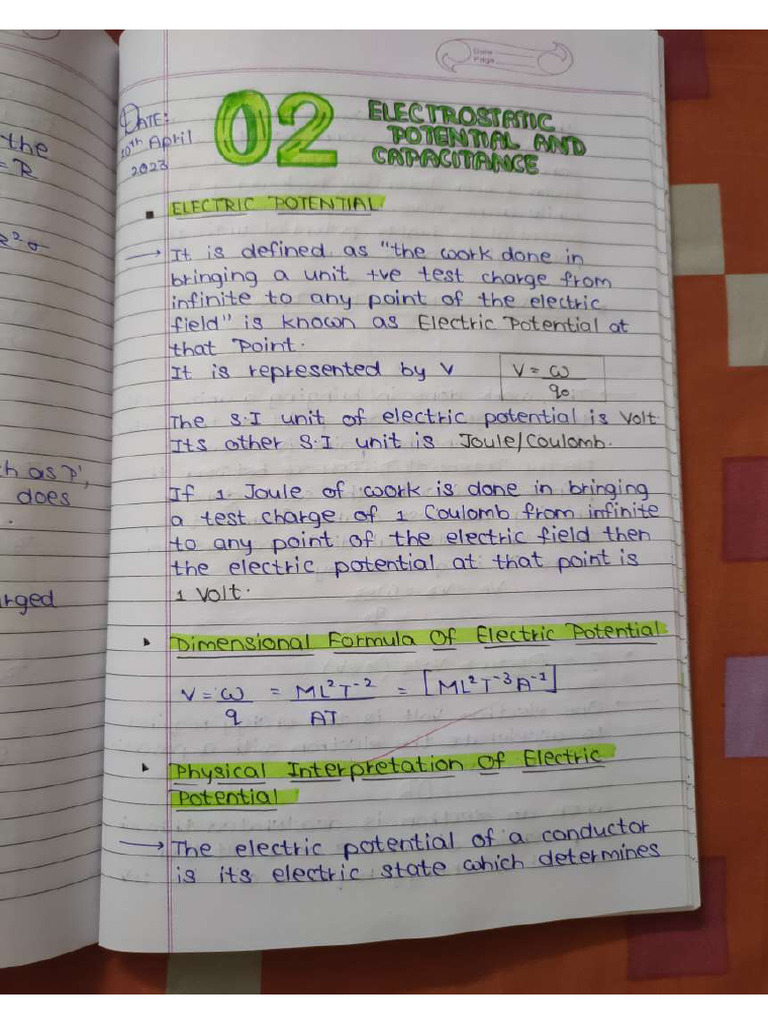 Date
Page
DATE:
10th April
2023
02
ELECTROSTATIC
POTENTIAL AND
CAPACITANCE
ELECTRIC POTENTIAL
→ It is defined as "the work done in
bringing a unit +ve test charge from
infinite to any point of the electric
field" is known as Electric Potential at
that Point.
It is represented by V
V = ω/q₀
The S.I unit of electric potential is Volt
Its other S.I unit is Joule/Coulomb.
If 1 Joule of work is done in bringing
a test charge of 1 Coulomb from infinite
to any point of the electric field then
the electric potential at that point is
1 Volt.
Dimensional Formula Of Electric Potential
V = ω/q = ML²T⁻²/AT = [ML²T⁻³A⁻¹]
Physical Interpretation Of Electric
Potential
→ The electric potential of a conductor
is its electric state which determines
the
= R
²σ
h as 'P',
does
rged